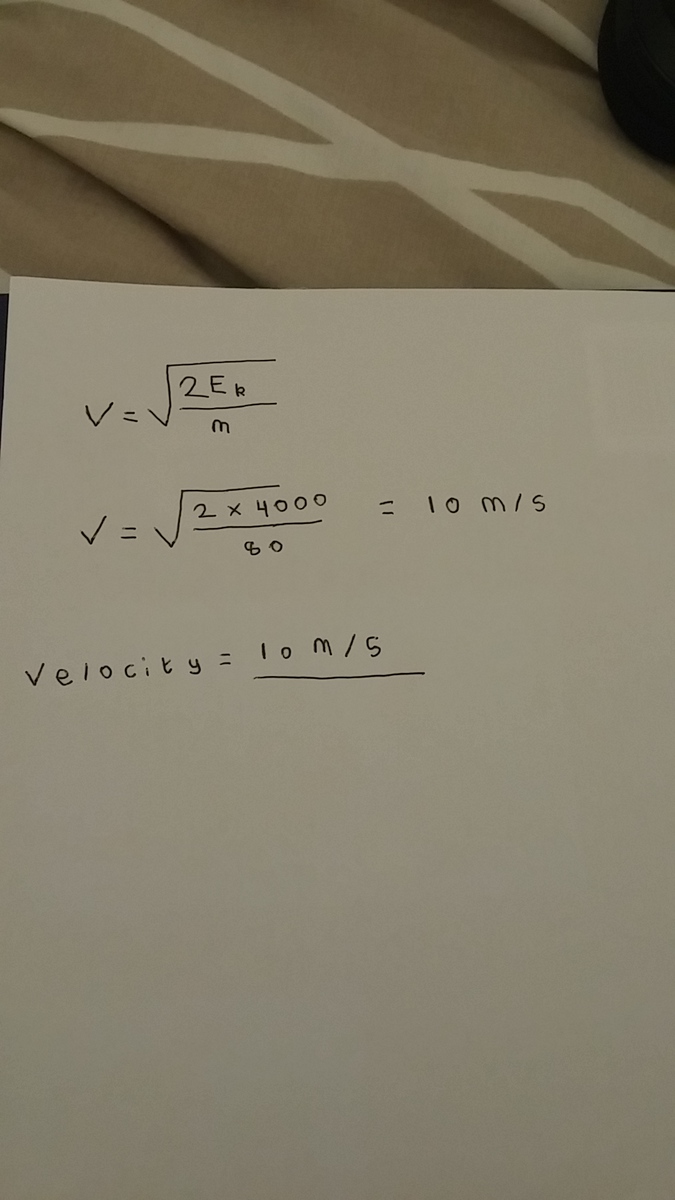 V = √2Ek/m
V = √2 x 4000/80 = 10 m/s
Velocity = 10 m/s